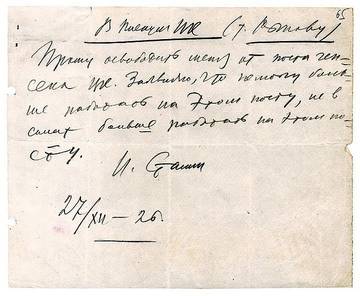 65
В Пленум ЦК (т. Рыкову)
Прошу освободить меня от поста ген-
сека ЦК. Заявляю, что не могу боль-
ше работать на этом посту, не в
силах больше работать на этом по-
сту.
И. Сталин
27/XII – 26.